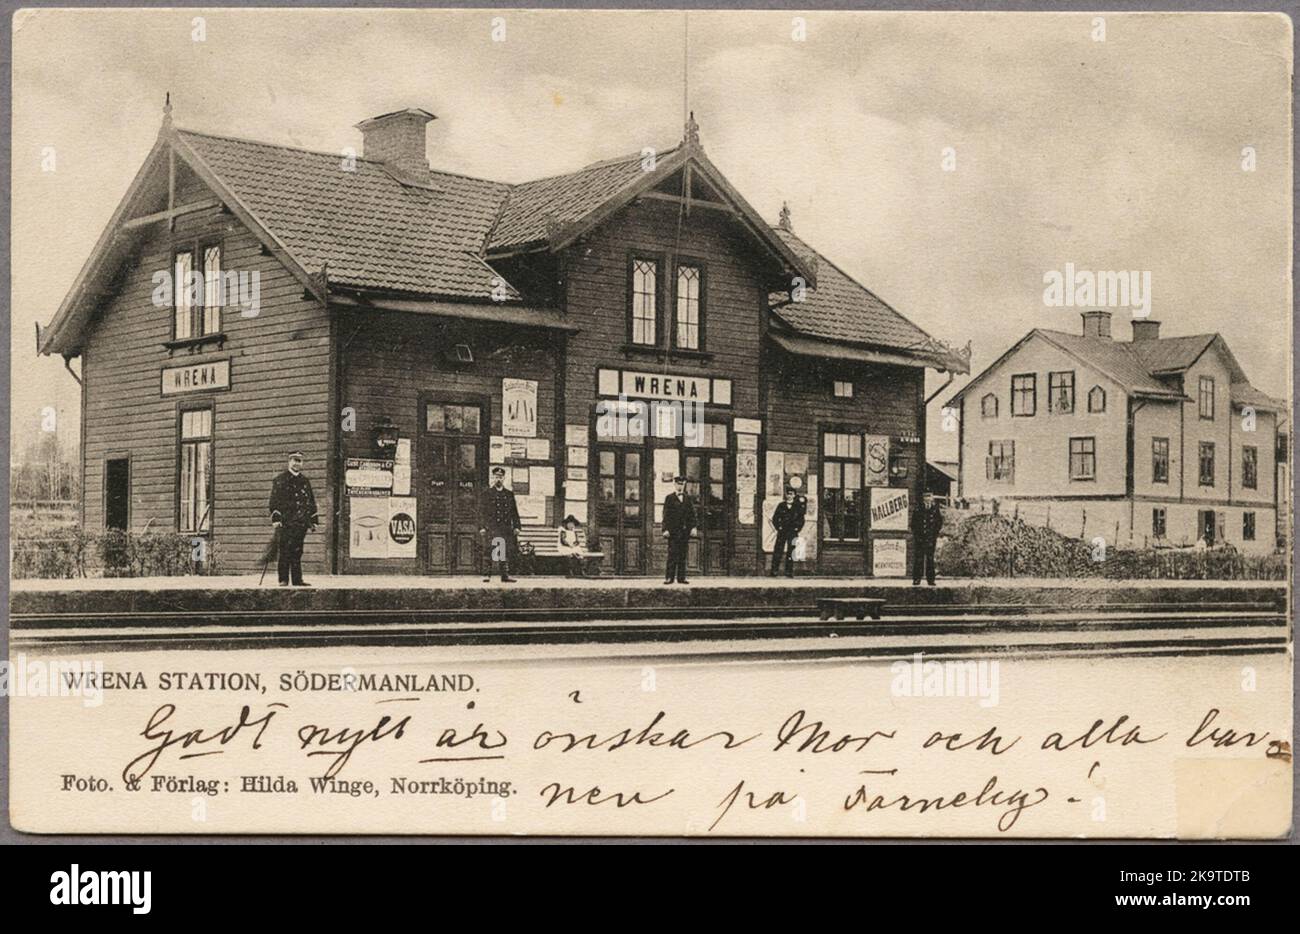 WRENA
WRENA
VASA
HALLBERG
WRENA STATION, SÖDERMANLAND.
Godt nytt år önskar Mor och alla bar-
Foto. & Förlag: Hilda Winge, Norrköping.
nen på Farneby!
alamy
Image ID: 2K9TDTB
www.alamy.com